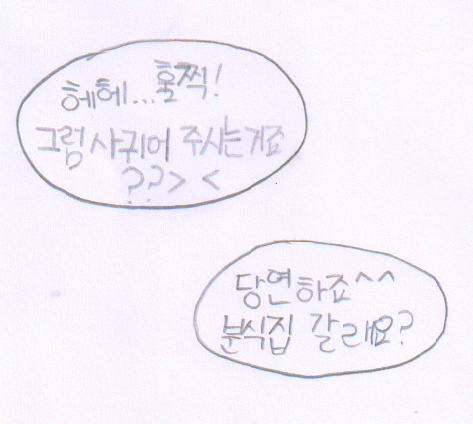 헤헤...훌쩍!
그럼 사귀어 주시는거죠
??> <
당연하죠^^
분식집 갈래요?